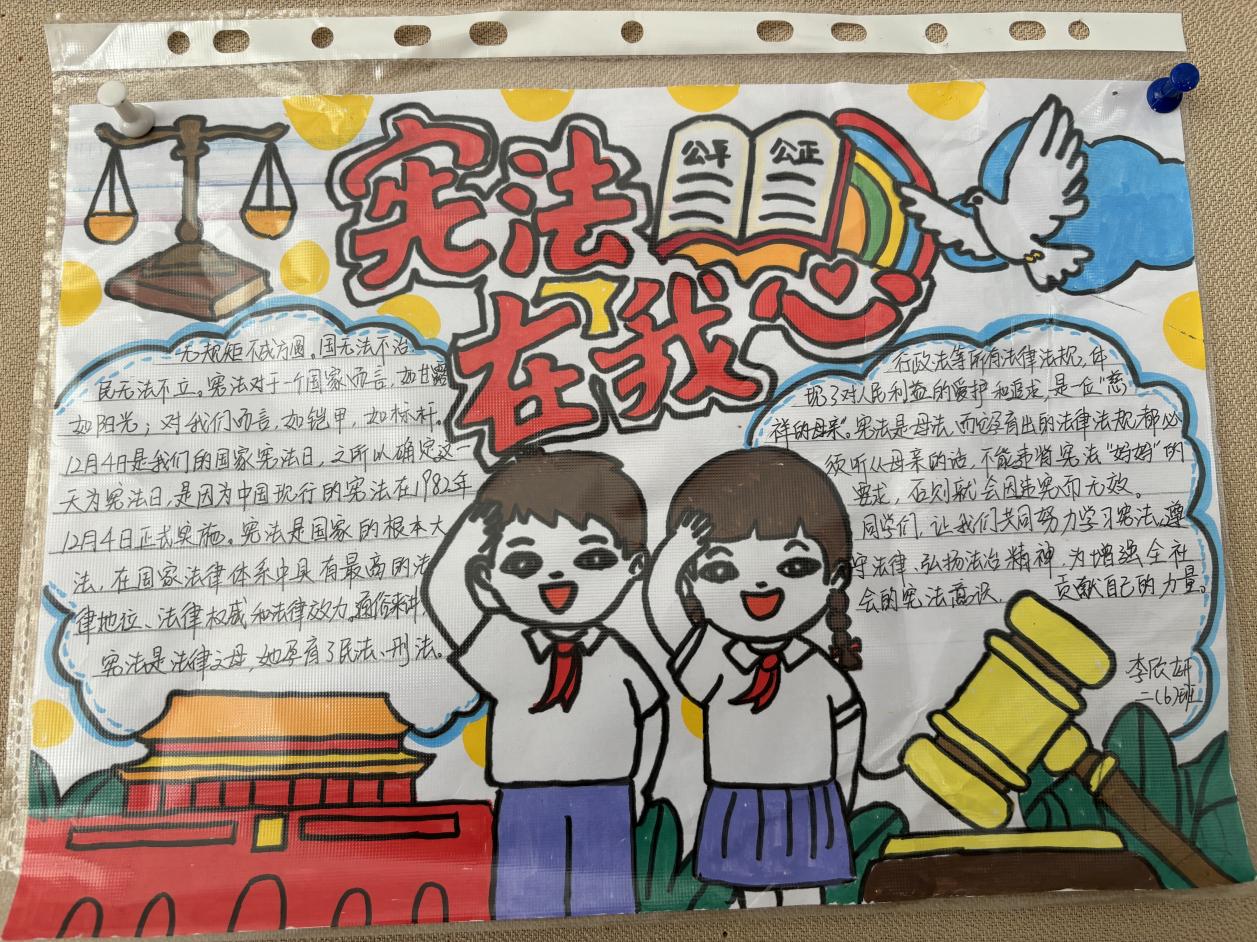 宪法
在我心
公平
公正
无规矩不成方圆。国无法不治
民无法不立。宪法对于一个国家而言,如甘露
如阳光;对我们而言,如铠甲,如标杆。
12月4日是我们的国家宪法日,之所以确定这一
天为宪法日,是因为中国现行的宪法在1982年
12月4日正式实施。宪法是国家的根本大
法,在国家法律体系中具有最高的法
律地位、法律权威和法律效力。通俗来讲
宪法是法律之母,她孕育了民法、刑法、
行政法等所有法律法规,体
现了对人民利益的爱护和追求,是一位“慈
祥的母亲”。宪法是母法,而它孕育出的法律法规都必
须听从母亲的话,不能违背宪法“妈妈”的
要求,否则就会因违宪而无效。
同学们,让我们共同努力学习宪法、遵
守法律、弘扬法治精神,为增强全社
会的宪法意识,贡献自己的力量。
李欣
二(6)班